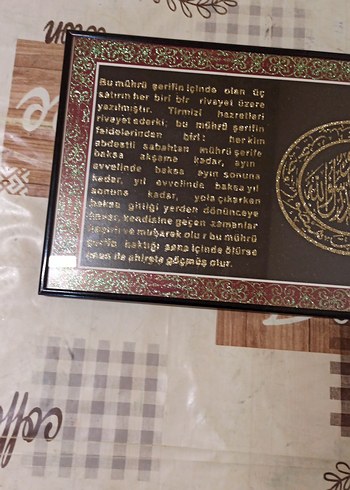 Bu mührü şerifin içinde olan üç
satırın her biri bir rivayet üzere
yazılmıştır. Tirmizi hazretleri
rivayet ederki; bu mührü şerifin
faidelerinden biri: her kim
abdestli sabahtan mührü şerife
baksa akşama kadar, ayın
evvelinde baksa ayın sonuna
kadar, yıl evvelinde baksa yıl
sonuna kadar, yola çıkarken
baksa gittiği yerden dönünceye
kadar, kendisine geçen zamanlar
ve mübarek olur bu mührü
şerife baktığı sene içinde ölürse
iman ile ahirete göçmüş olur.
coffee